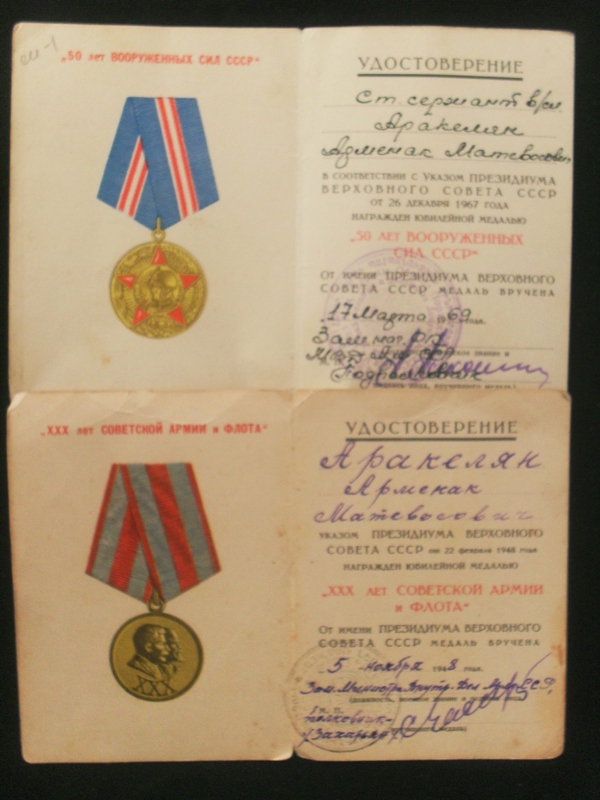 „50 лет ВООРУЖЕННЫХ СИЛ СССР"
УДОСТОВЕРЕНИЕ
Ст. сержант в/сл.
Аракелян
Арменак Матевосович
В СООТВЕТСТВИИ С УКАЗОМ ПРЕЗИДИУМА
ВЕРХОВНОГО СОВЕТА СССР
ОТ 26 ДЕКАБРЯ 1967 ГОДА
НАГРАЖДЕН ЮБИЛЕЙНОЙ МЕДАЛЬЮ
„50 ЛЕТ ВООРУЖЕННЫХ
СИЛ СССР"
ОТ ИМЕНИ ПРЕЗИДИУМА ВЕРХОВНОГО
СОВЕТА СССР МЕДАЛЬ ВРУЧЕНА
17 Марта 1969 года.
Зам.
звание и
Подполковник
„XXX лет СОВЕТСКОЙ АРМИИ и ФЛОТА"
XXX
УДОСТОВЕРЕНИЕ
Аракелян
Арменак
Матевосович
УКАЗОМ ПРЕЗИДИУМА ВЕРХОВНОГО
СОВЕТА СССР от 22 февраля 1948 года
НАГРАЖДЕН ЮБИЛЕЙНОЙ МЕДАЛЬЮ
„XXX ЛЕТ СОВЕТСКОЙ АРМИИ
и ФЛОТА"
ОТ ИМЕНИ ПРЕЗИДИУМА ВЕРХОВНОГО
СОВЕТА СССР МЕДАЛЬ ВРУЧЕНА
5 ноября 1948 года.
Зам. Министра Внутр. Дел Арм. ССР
полковник
/Захарьян/